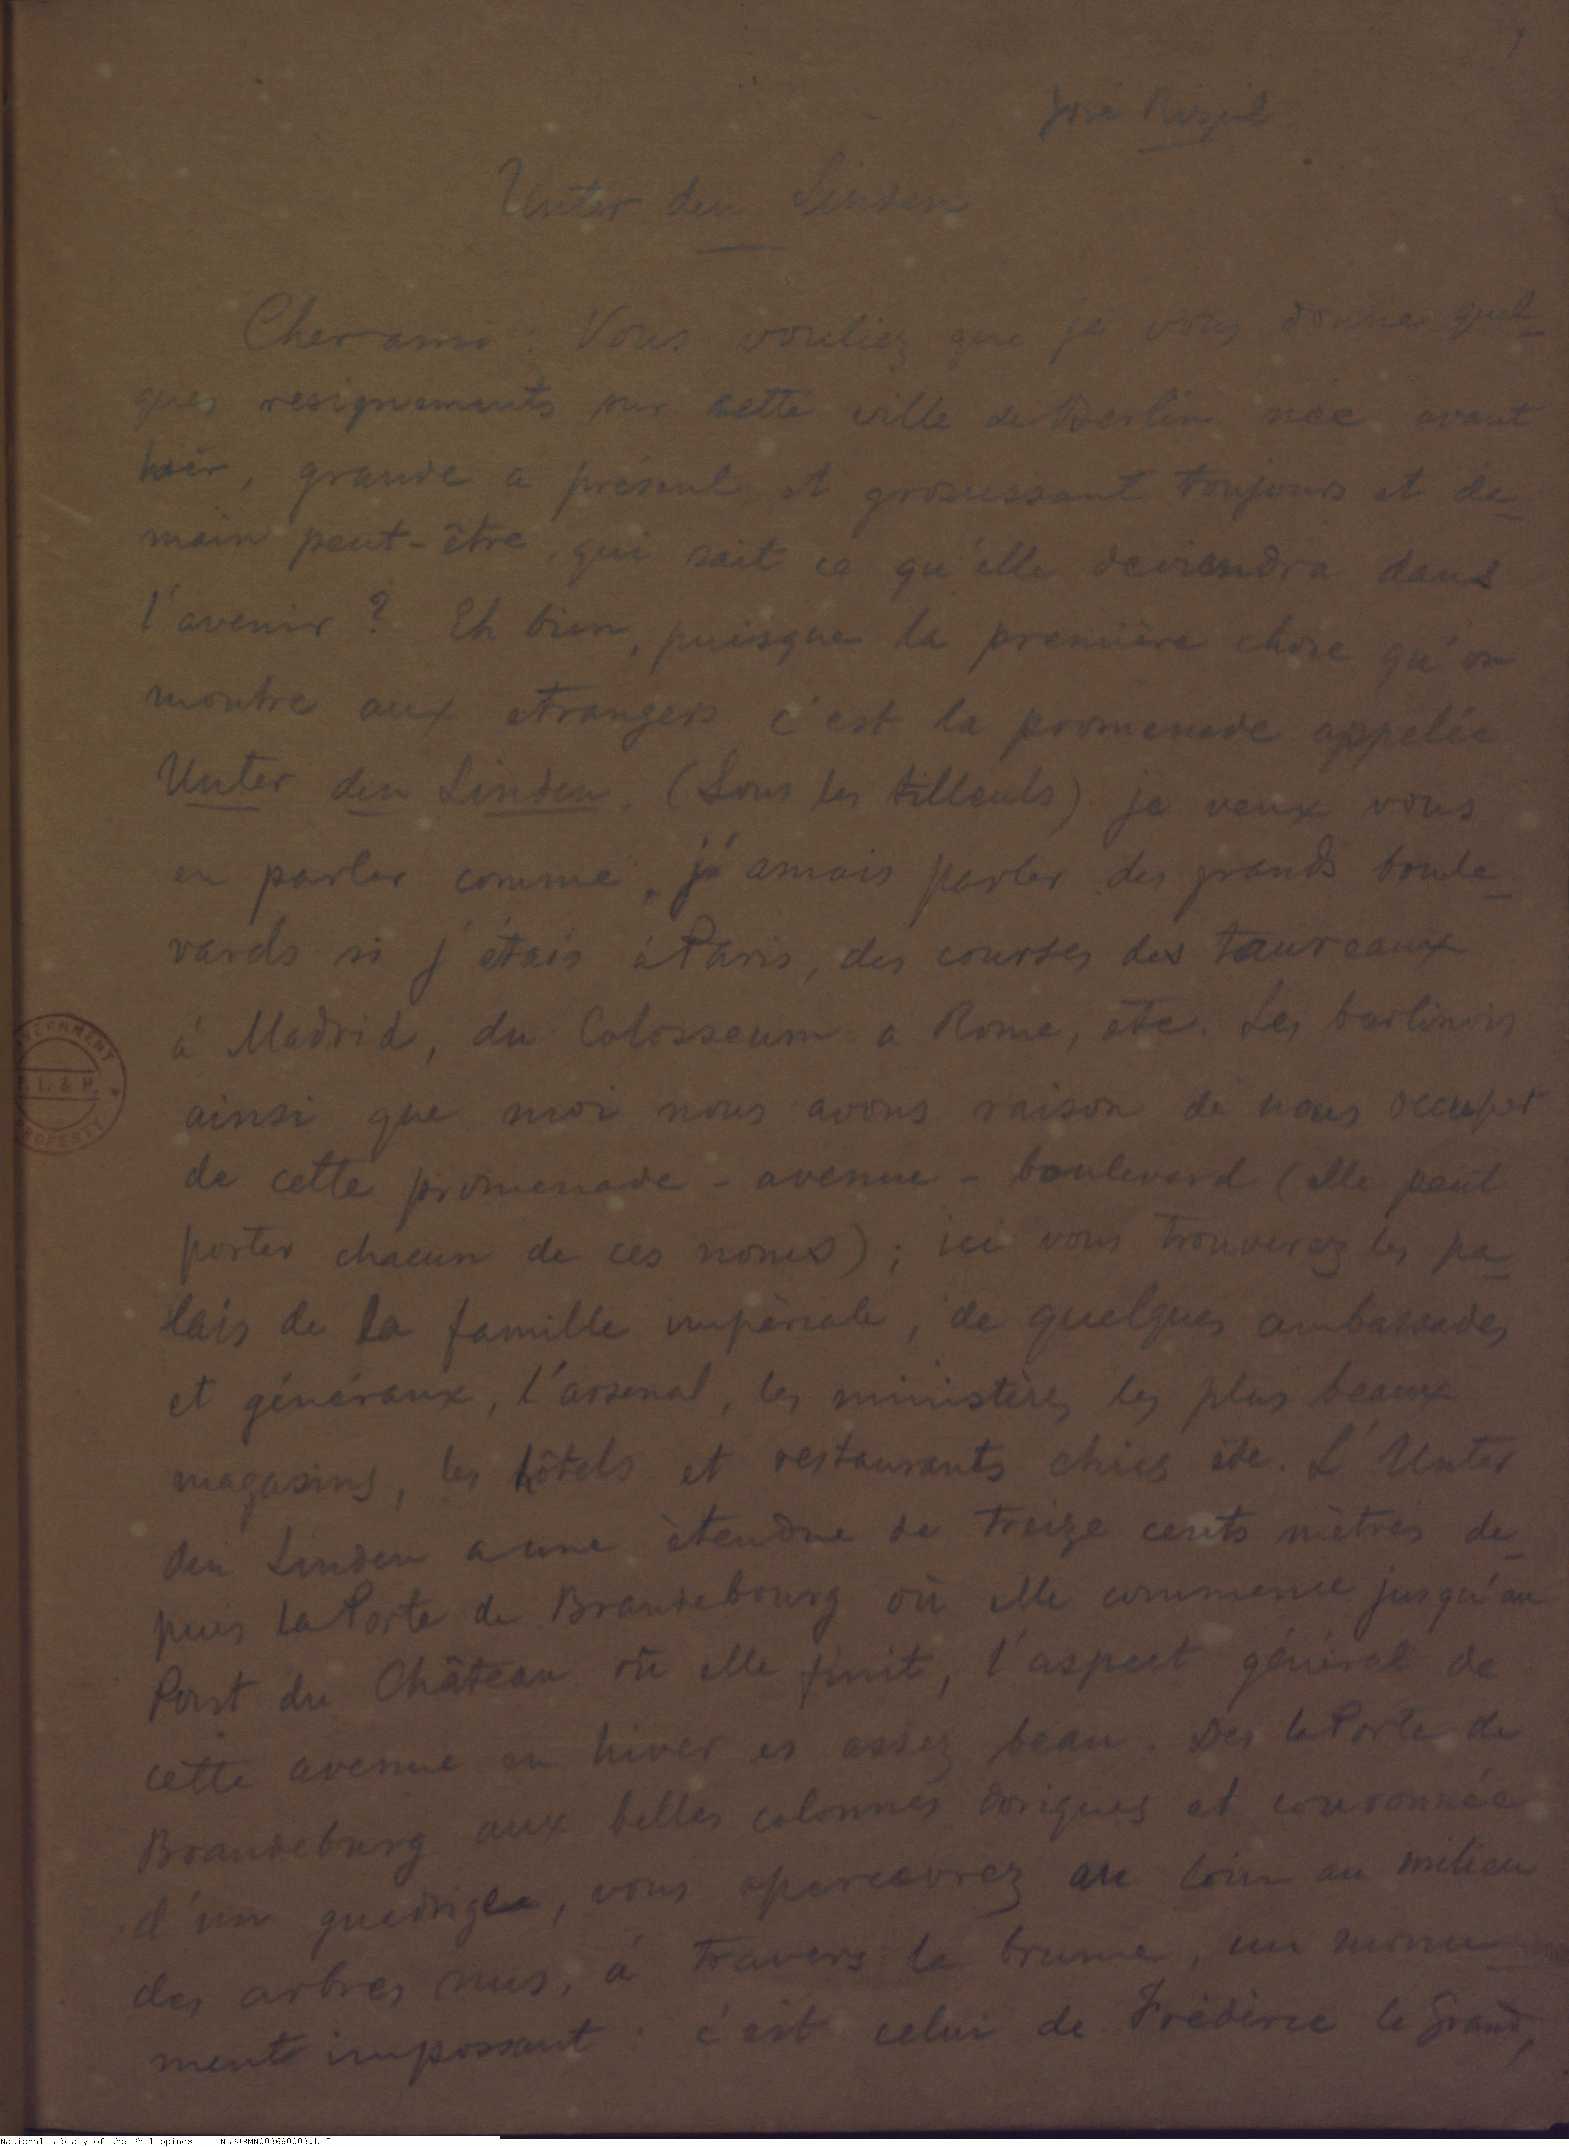 1
José Rizal
Unter den Linden
Cher ami: Vous vouliez que je vous donne quel-
ques resignements sur cette ville de Berlin née avant
hier, grande a présent et grossissant toujours et de-
main peut-être, qui sait ce qu'elle deviendra dans
l'avenir? Eh bien, puisque la première chose qu'on
montre aux etrangers c'est la promenade appelée
Unter den Linden, (Sous les tilleuls) je veux vous
en parler comme j'amais parler des grands boule-
vards si j'étais à Paris, des courses des taureaux
à Madrid, du Colosseum a Rome, etc. Les berlinois
ainsi que moi nous avons raison de nous occuper
de cette promenade - avenue - boulevard (elle peut
porter chacun de ces noms); ici vous trouverez les pa-
lais de la famille impèriale, de quelques ambassades
et généraux, l'arsenal, les ministères, les plus beaux
magasins, les hôtels et restaurants chics etc. L'Unter
den Linden a une ètendue de treize cents mètres de-
puis la Porte de Brandebourg où elle commence jusqu'au
Pont du Château où elle finit, l'aspect général de
cette avenue en hiver es assez beau. Des la Porte de
Brandeburg aux belles colonnes doriques et couronnée
d'un quadrige, vous apercevrez au loin au milieu
des arbres nus, à travers la brume, un monu-
ment impossant: c'est celui de Frédéric le Grand,
GOVERNMENT
P. L. & M.
PROPERTY
National Library of the Philippines